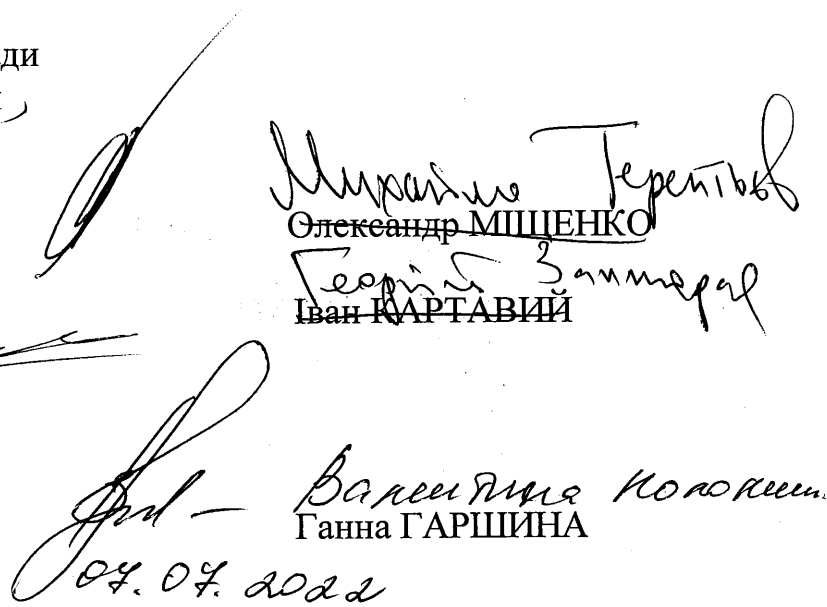 ди
Михайло Терентьєв
Олександр МІЩЕНКО
Георгій
Іван КАРТАВИЙ
Валентина
Ганна ГАРШИНА
07.07.2022